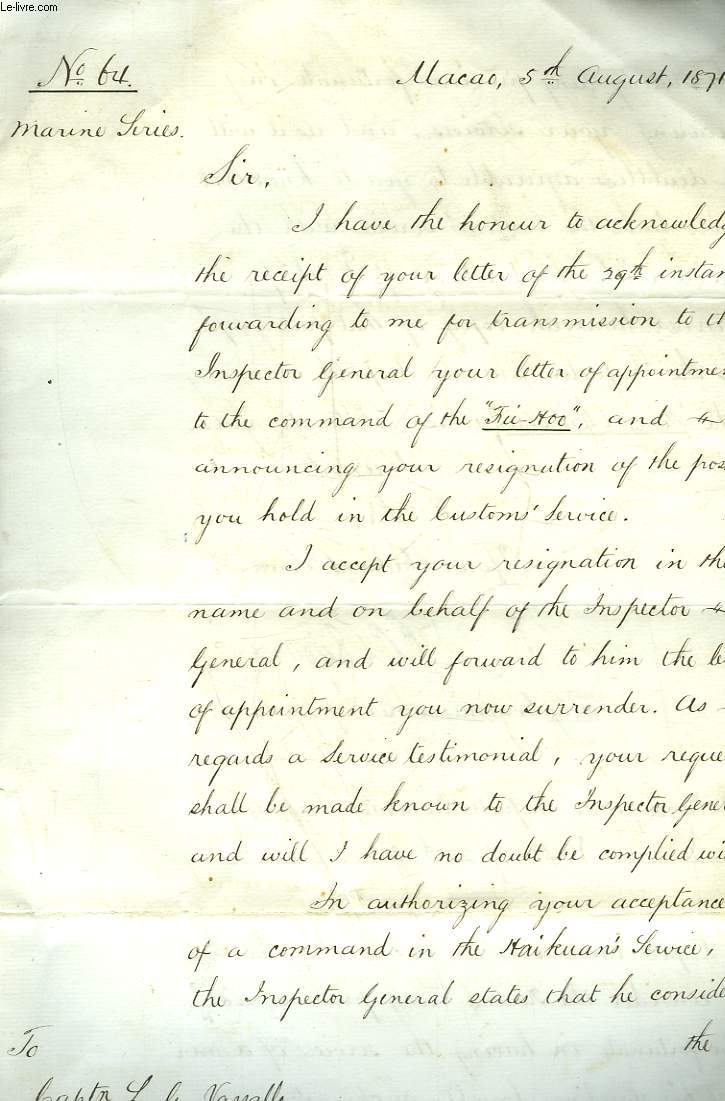 Le-livre.com
No. 64.
Macao, 5th August, 1871
Marine Series.
Sir,
I have the honour to acknowledg
the receipt of your letter of the 29th instan
forwarding to me for transmission to th
Inspector General your letter of appointmen
to the command of the "Fei-Hoo", and
announcing your resignation of the pos
you hold in the Customs' Service.
I accept your resignation in the
name and on behalf of the Inspector
General, and will forward to him the le
of appointment you now surrender. As
regards a Service testimonial, your reque
shall be made known to the Inspector Gener
and will I have no doubt be complied wi
In authorizing your acceptance
of a command in the Haikuan's Service,
the Inspector General states that he conside
To
the
Captn